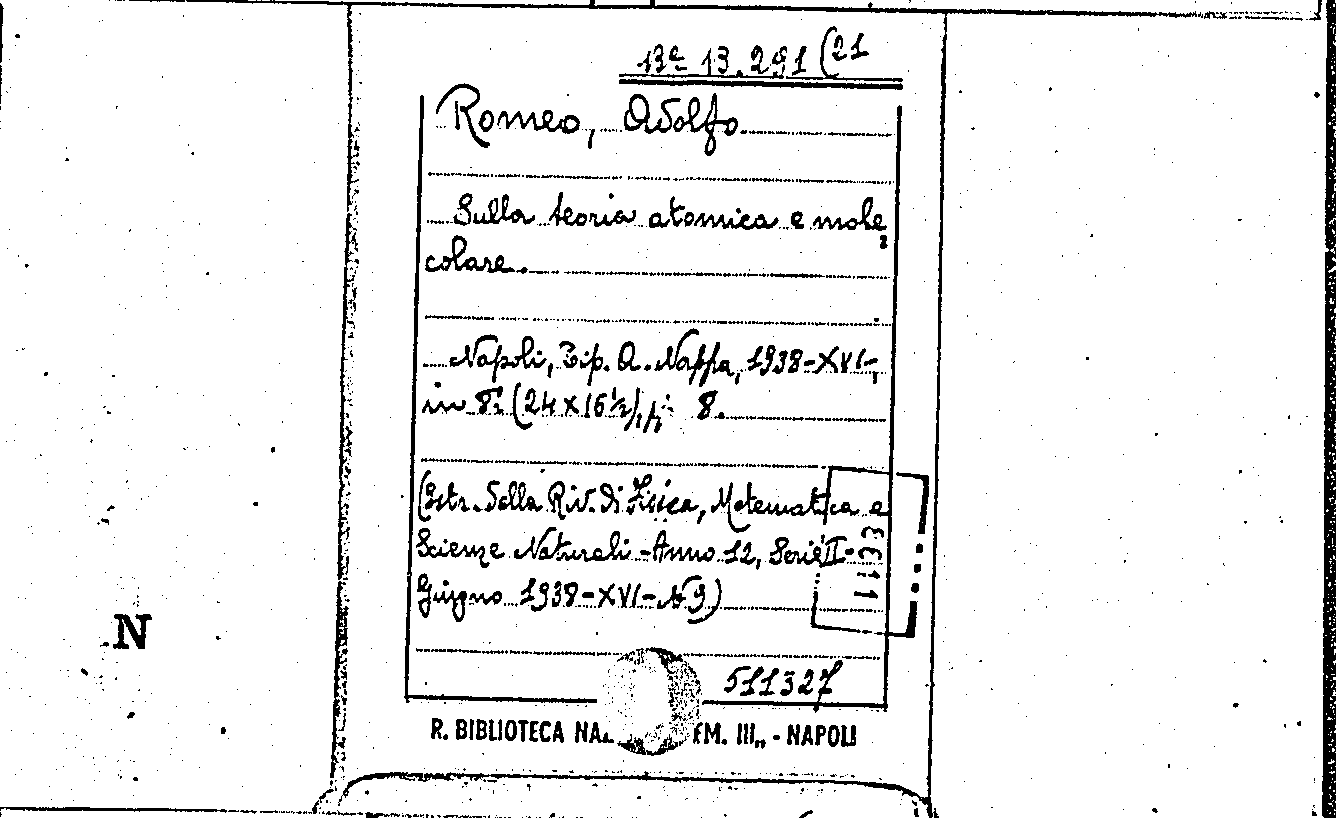 13ª 13.291 (21
Romeo, Adolfo
Sulla teoria atomica e mole=
colare.
Napoli, Tip. A. Nappa, 1938-XVI-,
in 8º (24 x 16 ½), pp. 8.
(Estr. della Riv. di Fisica, Matematica e
Scienze Naturali - Anno 12, Serie II -
Giugno 1938-XVI- N 9)
N
511327
R. BIBLIOTECA EM. III„ - NAPOLI